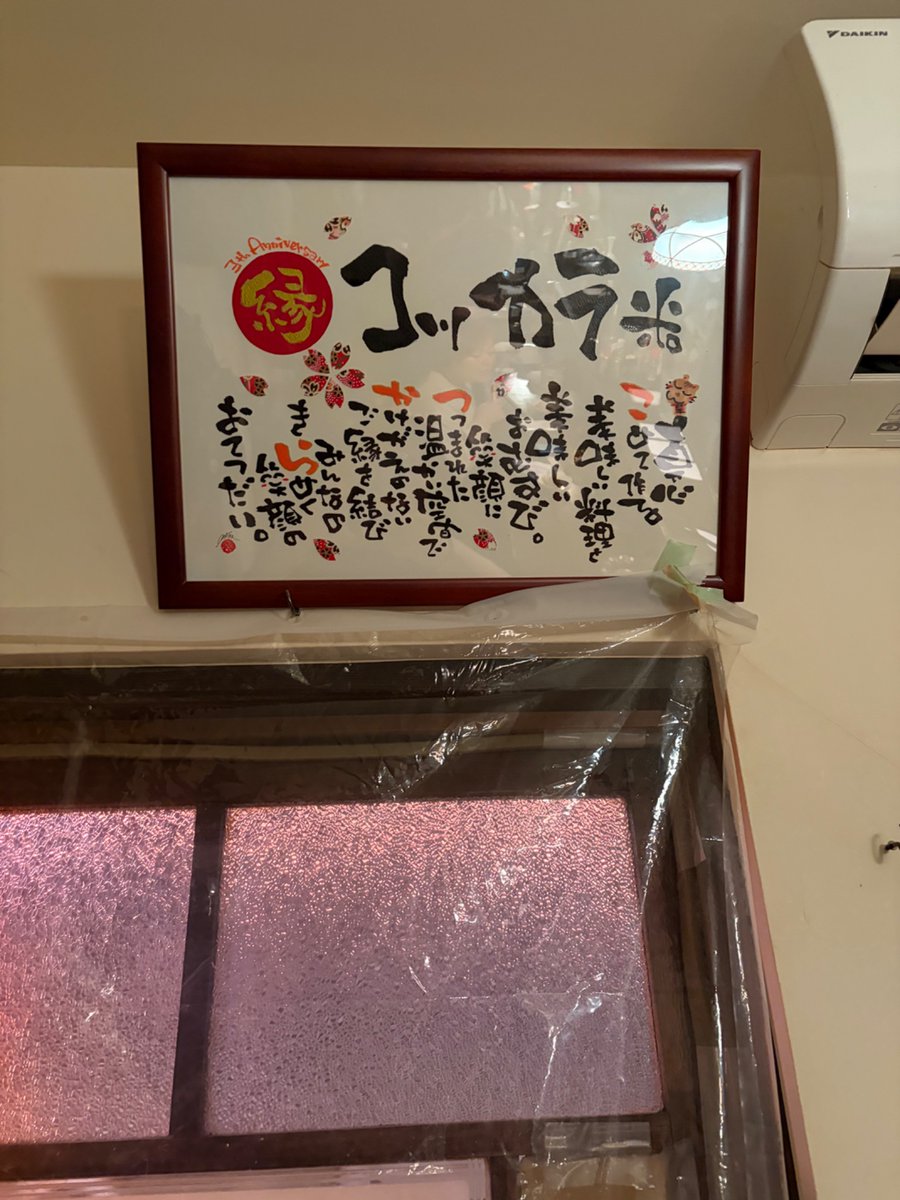 DAIKIN
Anniversary
縁
コッカラ米
真心
こめて作る。
美味しい料理と
美味しい
おむすび。
笑顔に
つつまれた
温かい空間で
かけがえのない
ご縁を結び
みんなの
きらめく
笑顔の
おてつだい。